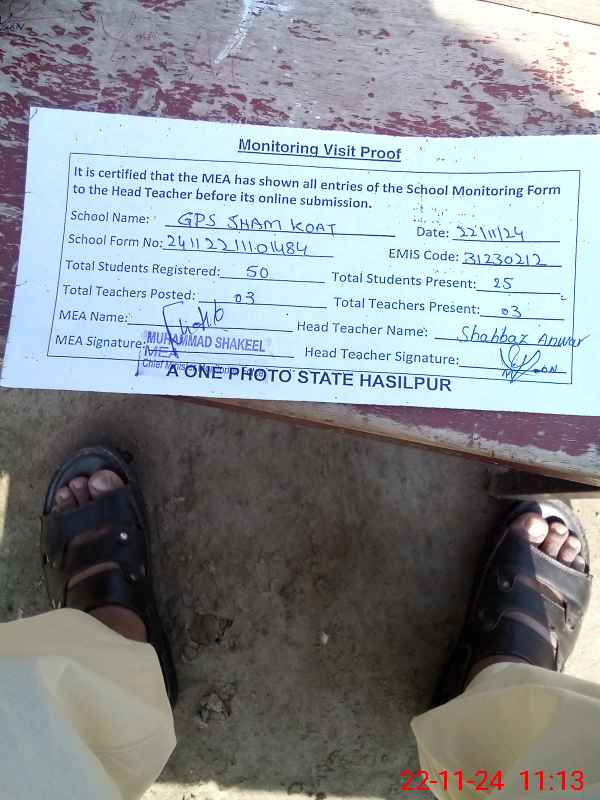 Monitoring Visit Proof
It is certified that the MEA has shown all entries of the School Monitoring Form
to the Head Teacher before its online submission.
School Name: GPS SHAM KOAT Date: 22/11/24
School Form No: 24112211101484 EMIS Code: 31230212
Total Students Registered: 50 Total Students Present: 25
Total Teachers Posted: 03 Total Teachers Present: 03
MEA Name: Head Teacher Name: Shahbaz Anwar
MUHAMMAD SHAKEEL
MEA Signature: MEA Head Teacher Signature:
Chief Minister
A ONE PHOTO STATE HASILPUR
22-11-24 11:13